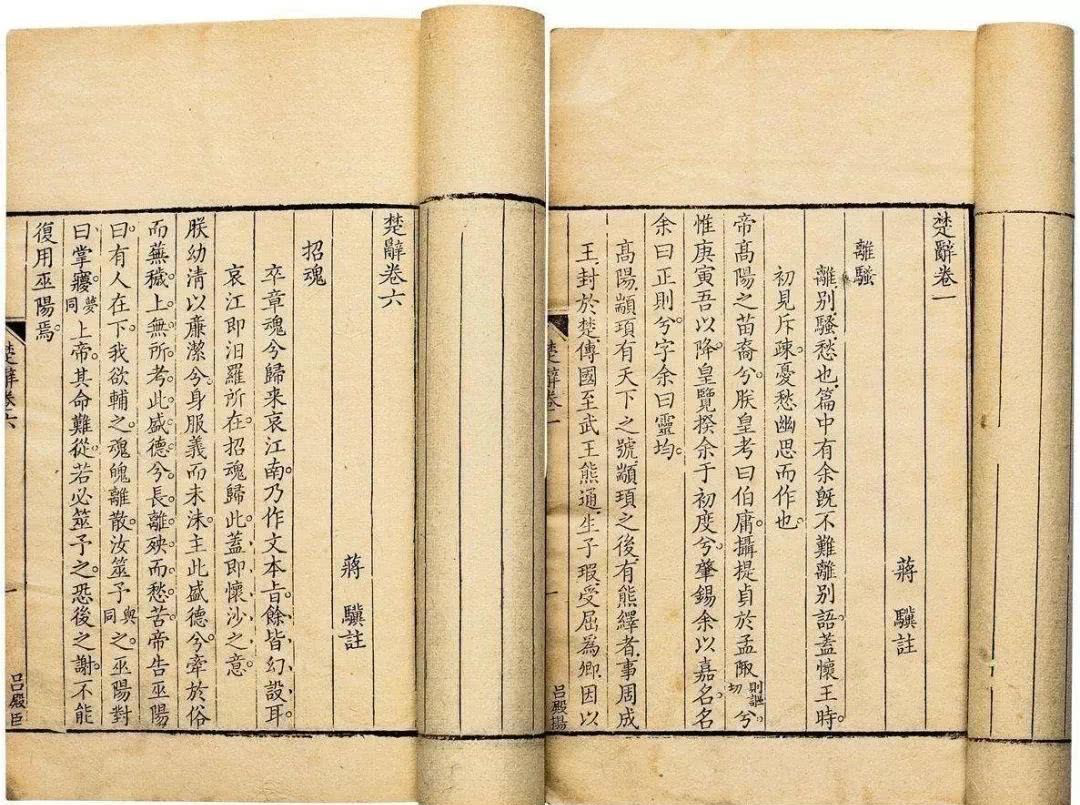 楚辭卷一
蔣驥註
離騷
離別騷愁也篇中有余旣不難離別語蓋懷王時。
初見斥疎。憂愁幽思而作也。
帝高陽之苗裔兮。朕皇考曰伯庸。攝提貞於孟陬則謳切兮。
惟庚寅吾以降。皇覽揆余于初度兮。肇錫余以嘉名。名
余曰正則兮。字余曰靈均。
高陽。顓頊有天下之號。顓頊之後。有熊繹者。事周成
王。封於楚。傳國至武王熊通。生子瑕。受屈為卿。因以
楚辭卷一
一
呂殿揚
楚辭卷六
蔣驥註
招魂
卒章魂兮歸来哀江南。乃作文本旨。餘皆幻設耳。
哀江即汨羅所在。招魂歸此。蓋即懷沙之意。
朕幼清以廉潔兮。身服義而未沬。主此盛德兮。牽於俗
而蕪穢。上無所考。此盛德兮。長離殃而愁苦。帝告巫陽
曰。有人在下。我欲輔之。魂魄離散。汝筮予與同之。巫陽對
曰。掌㝱夢同上帝。其命難從。若必筮予之。恐後之謝。不能
復用巫陽焉。
楚辭卷六
一
呂殿臣